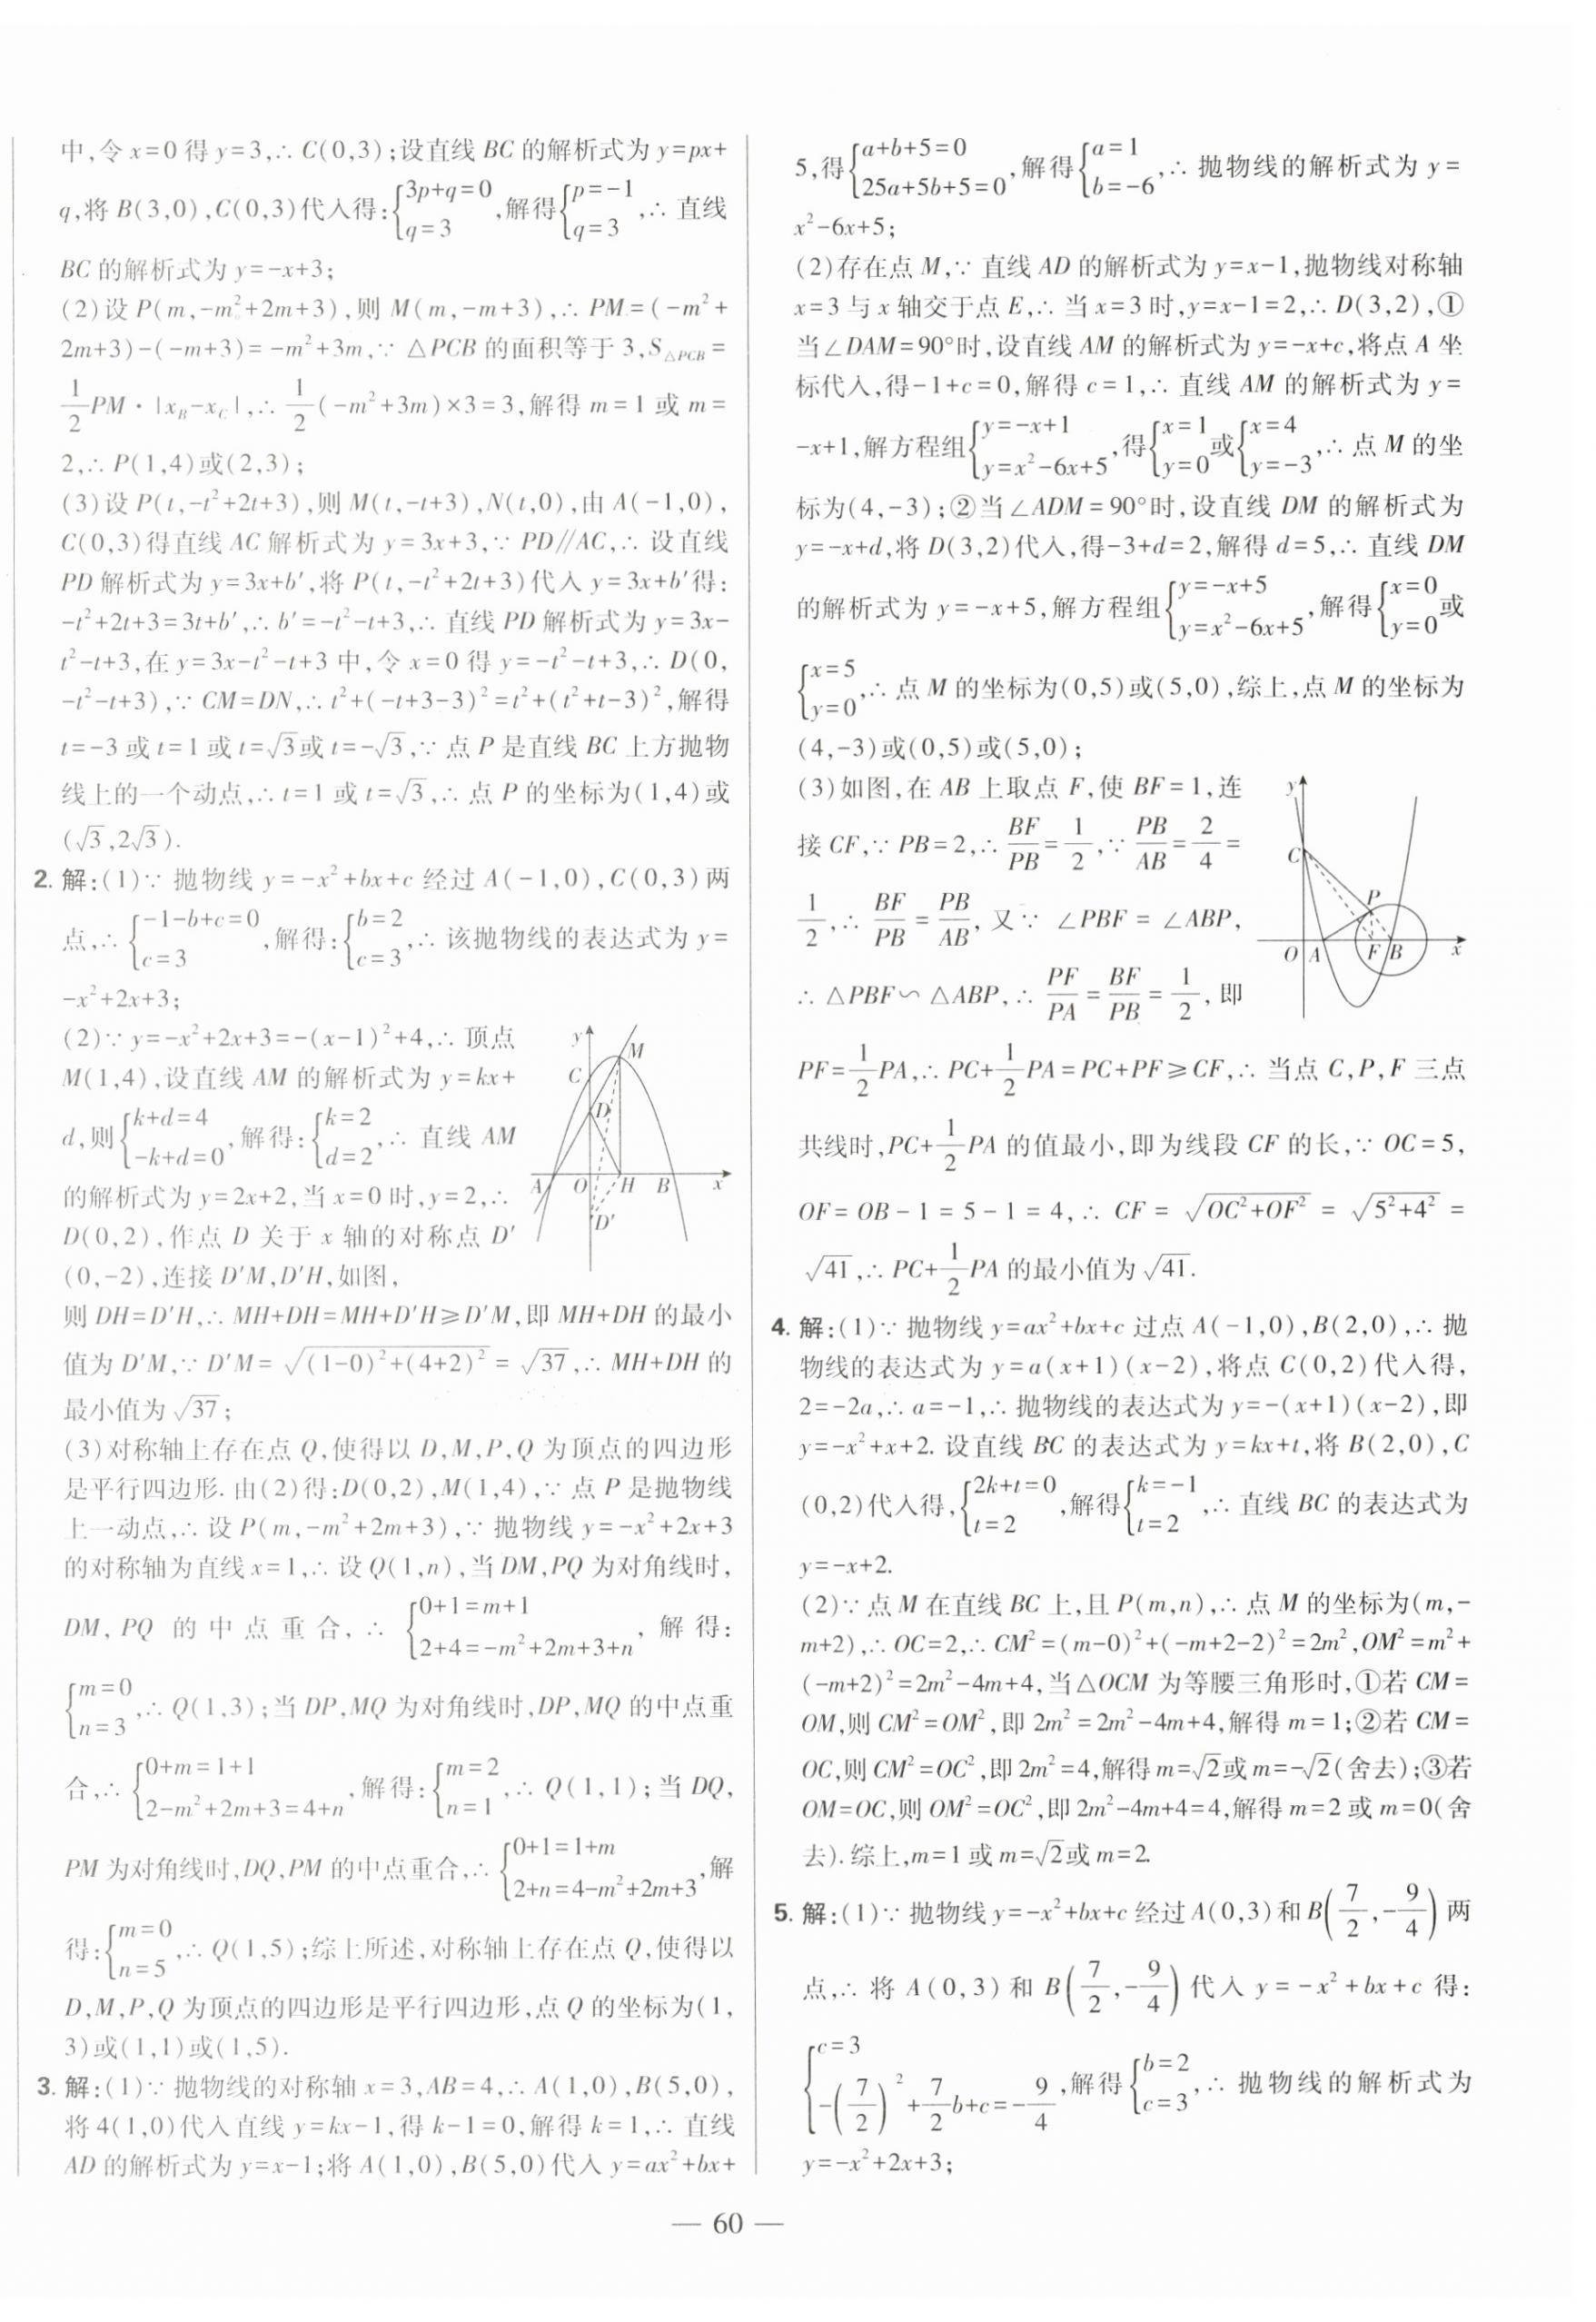 中,令 x=0 得 y=3,∴ C(0,3);设直线 BC 的解析式为 y=px+
q,将 B(3,0),C(0,3)代入得:{3p+q=0 q=3,解得{p=-1 q=3,∴ 直线
BC 的解析式为 y=-x+3;
(2)设 P(m,-m²+2m+3),则 M(m,-m+3),∴ PM=(-m²+
2m+3)-(-m+3)=-m²+3m,∵ △PCB 的面积等于 3,S△PCB=
1/2 PM·|x_B-x_C|,∴ 1/2(-m²+3m)×3=3,解得 m=1 或 m=
2,∴ P(1,4)或(2,3);
(3)设 P(t,-t²+2t+3),则 M(t,-t+3),N(t,0),由 A(-1,0),
C(0,3)得直线 AC 解析式为 y=3x+3,∵ PD∥AC,∴ 设直线
PD 解析式为 y=3x+b′,将 P(t,-t²+2t+3)代入 y=3x+b′得:
-t²+2t+3=3t+b′,∴ b′=-t²-t+3,∴ 直线 PD 解析式为 y=3x-
t²-t+3,在 y=3x-t²-t+3 中,令 x=0 得 y=-t²-t+3,∴ D(0,
-t²-t+3),∵ CM=DN,∴ t²+(-t+3-3)²=t²+(t²+t-3)²,解得
t=-3 或 t=1 或 t=√3或 t=-√3,∵ 点 P 是直线 BC 上方抛物
线上的一个动点,∴ t=1 或 t=√3,∴ 点 P 的坐标为(1,4)或
(√3,2√3).
2. 解:(1)∵ 抛物线 y=-x²+bx+c 经过 A(-1,0),C(0,3)两
点,∴ {-1-b+c=0 c=3,解得:{b=2 c=3,∴ 该抛物线的表达式为 y=
-x²+2x+3;
(2)∵ y=-x²+2x+3=-(x-1)²+4,∴ 顶点
M(1,4),设直线 AM 的解析式为 y=kx+
d,则{k+d=4 -k+d=0,解得:{k=2 d=2,∴ 直线 AM
的解析式为 y=2x+2,当 x=0 时,y=2,∴
D(0,2),作点 D 关于 x 轴的对称点 D′
(0,-2),连接 D′M,D′H,如图,
y
M
C
D
A
O
H
B
x
D′
则 DH=D′H,∴ MH+DH=MH+D′H≥D′M,即 MH+DH 的最小
值为 D′M,∵ D′M=√((1-0)²+(4+2)²)=√37,∴ MH+DH 的
最小值为√37;
(3)对称轴上存在点 Q,使得以 D,M,P,Q 为顶点的四边形
是平行四边形. 由(2)得:D(0,2),M(1,4),∵ 点 P 是抛物线
上一动点,∴ 设 P(m,-m²+2m+3),∵ 抛物线 y=-x²+2x+3
的对称轴为直线 x=1,∴ 设 Q(1,n),当 DM,PQ 为对角线时,
DM,PQ 的中点重合,∴ {0+1=m+1 2+4=-m²+2m+3+n,解得:
{m=0 n=3,∴ Q(1,3);当 DP,MQ 为对角线时,DP,MQ 的中点重
合,∴ {0+m=1+1 2-m²+2m+3=4+n,解得:{m=2 n=1,∴ Q(1,1);当 DQ,
PM 为对角线时,DQ,PM 的中点重合,∴ {0+1=1+m 2+n=4-m²+2m+3,解
得:{m=0 n=5,∴ Q(1,5);综上所述,对称轴上存在点 Q,使得以
D,M,P,Q 为顶点的四边形是平行四边形,点 Q 的坐标为(1,
3)或(1,1)或(1,5).
3. 解:(1)∵ 抛物线的对称轴 x=3,AB=4,∴ A(1,0),B(5,0),
将 4(1,0)代入直线 y=kx-1,得 k-1=0,解得 k=1,∴ 直线
AD 的解析式为 y=x-1;将 A(1,0),B(5,0)代入 y=ax²+bx+
5,得{a+b+5=0 25a+5b+5=0,解得{a=1 b=-6,∴ 抛物线的解析式为 y=
x²-6x+5;
(2)存在点 M,∵ 直线 AD 的解析式为 y=x-1,抛物线对称轴
x=3 与 x 轴交于点 E,∴ 当 x=3 时,y=x-1=2,∴ D(3,2),①
当∠DAM=90°时,设直线 AM 的解析式为 y=-x+c,将点 A 坐
标代入,得-1+c=0,解得 c=1,∴ 直线 AM 的解析式为 y=
-x+1,解方程组{y=-x+1 y=x²-6x+5,得{x=1 y=0或{x=4 y=-3,∴ 点 M 的坐
标为(4,-3);②当∠ADM=90°时,设直线 DM 的解析式为
y=-x+d,将 D(3,2)代入,得-3+d=2,解得 d=5,∴ 直线 DM
的解析式为 y=-x+5,解方程组{y=-x+5 y=x²-6x+5,解得{x=0 y=0或
{x=5 y=0,∴ 点 M 的坐标为(0,5)或(5,0),综上,点 M 的坐标为
(4,-3)或(0,5)或(5,0);
(3)如图,在 AB 上取点 F,使 BF=1,连
接 CF,∵ PB=2,∴ BF/PB=1/2,∵ PB/AB=2/4=
1/2,∴ BF/PB=PB/AB,又∵ ∠PBF=∠ABP,
∴ △PBF∽△ABP,∴ PF/PA=BF/PB=1/2,即
y
C
P
O
A
F
B
x
PF=1/2 PA,∴ PC+1/2 PA=PC+PF≥CF,∴ 当点 C,P,F 三点
共线时,PC+1/2 PA 的值最小,即为线段 CF 的长,∵ OC=5,
OF=OB-1=5-1=4,∴ CF=√(OC²+OF²)=√(5²+4²)=
√41,∴ PC+1/2 PA 的最小值为√41.
4. 解:(1)∵ 抛物线 y=ax²+bx+c 过点 A(-1,0),B(2,0),∴ 抛
物线的表达式为 y=a(x+1)(x-2),将点 C(0,2)代入得,
2=-2a,∴ a=-1,∴ 抛物线的表达式为 y=-(x+1)(x-2),即
y=-x²+x+2. 设直线 BC 的表达式为 y=kx+t,将 B(2,0),C
(0,2)代入得,{2k+t=0 t=2,解得{k=-1 t=2,∴ 直线 BC 的表达式为
y=-x+2.
(2)∵ 点 M 在直线 BC 上,且 P(m,n),∴ 点 M 的坐标为(m,-
m+2),∴ OC=2,∴ CM²=(m-0)²+(-m+2-2)²=2m²,OM²=m²+
(-m+2)²=2m²-4m+4,当△OCM 为等腰三角形时,①若 CM=
OM,则 CM²=OM²,即 2m²=2m²-4m+4,解得 m=1;②若 CM=
OC,则 CM²=OC²,即 2m²=4,解得 m=√2或 m=-√2(舍去);③若
OM=OC,则 OM²=OC²,即 2m²-4m+4=4,解得 m=2 或 m=0(舍
去).综上,m=1 或 m=√2或 m=2.
5. 解:(1)∵ 抛物线 y=-x²+bx+c 经过 A(0,3)和 B(7/2,-9/4)两
点,∴ 将 A(0,3)和 B(7/2,-9/4)代入 y=-x²+bx+c 得:
{c=3 -(7/2)²+7/2 b+c=-9/4,解得{b=2 c=3,∴ 抛物线的解析式为
y=-x²+2x+3;
— 60 —